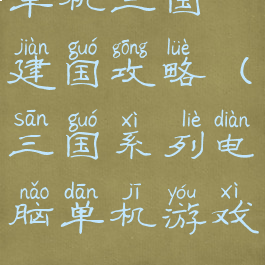 单机三国
jiàn guó gōng lüè
建国攻略（
sān guó xì liè diàn
三国系列电
nǎo dān jī yóu xì
脑单机游戏